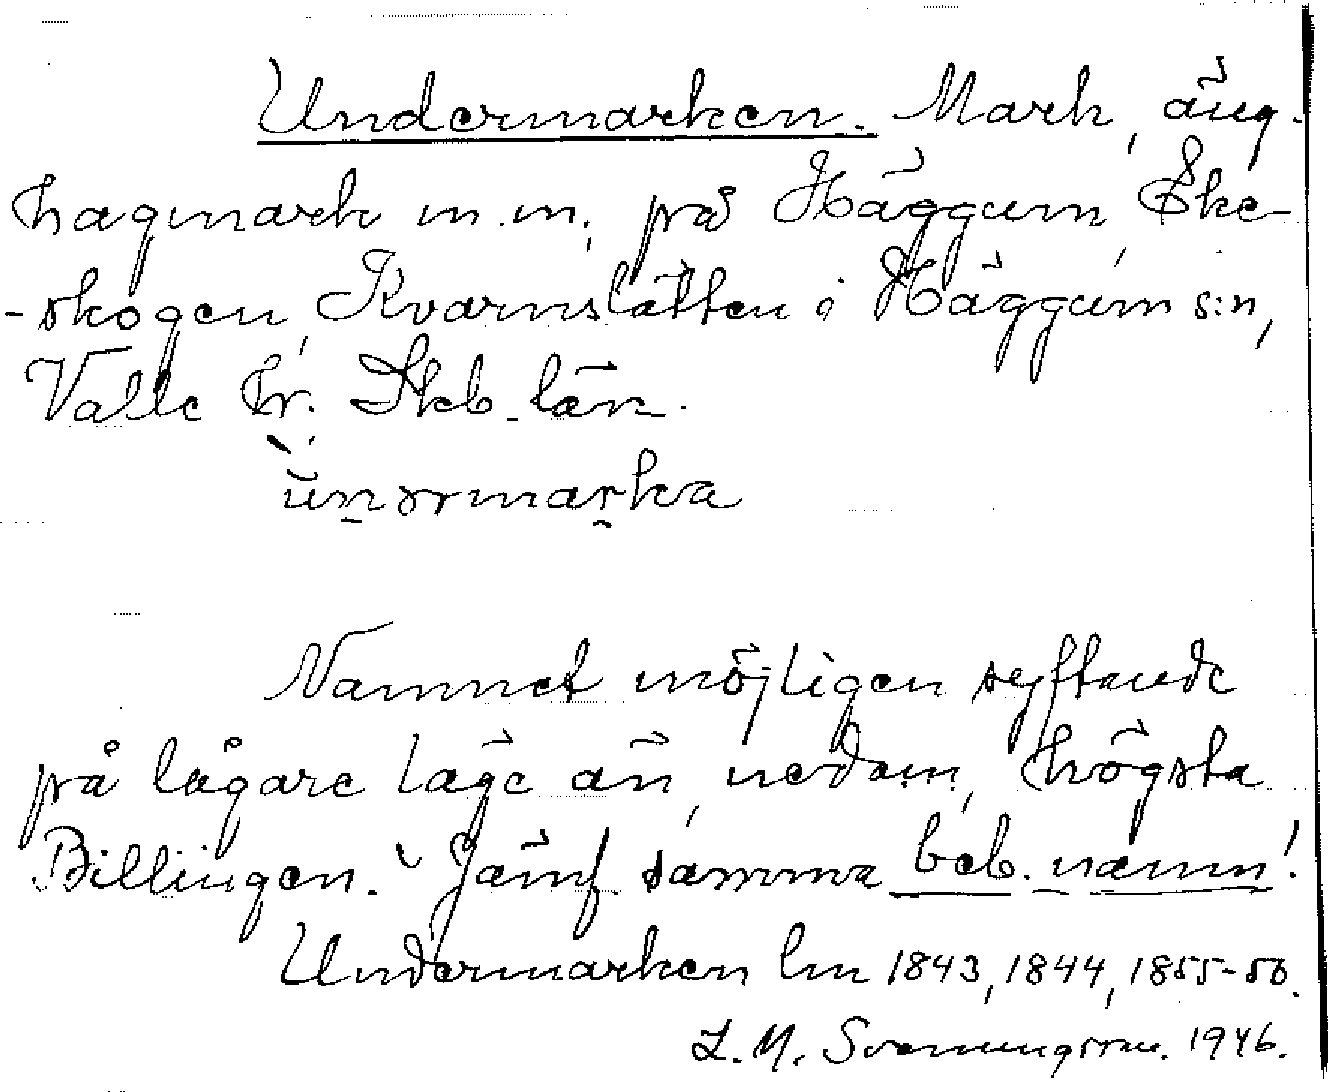 Undermarken. Mark, äng.
hagmark m.m., på Häggum, Eke-
-skogen, Kvarnslätten i Häggum s:n,
Valle hr. Skb. län.
ùnərmarka
Namnet möjligen syftande
på lägare läge än, nedom, högsta
Billingen. Jämf samma beb. namn!
Undermarken lm 1843, 1844, 1855-56.
L. M. Svenungsson. 1946.